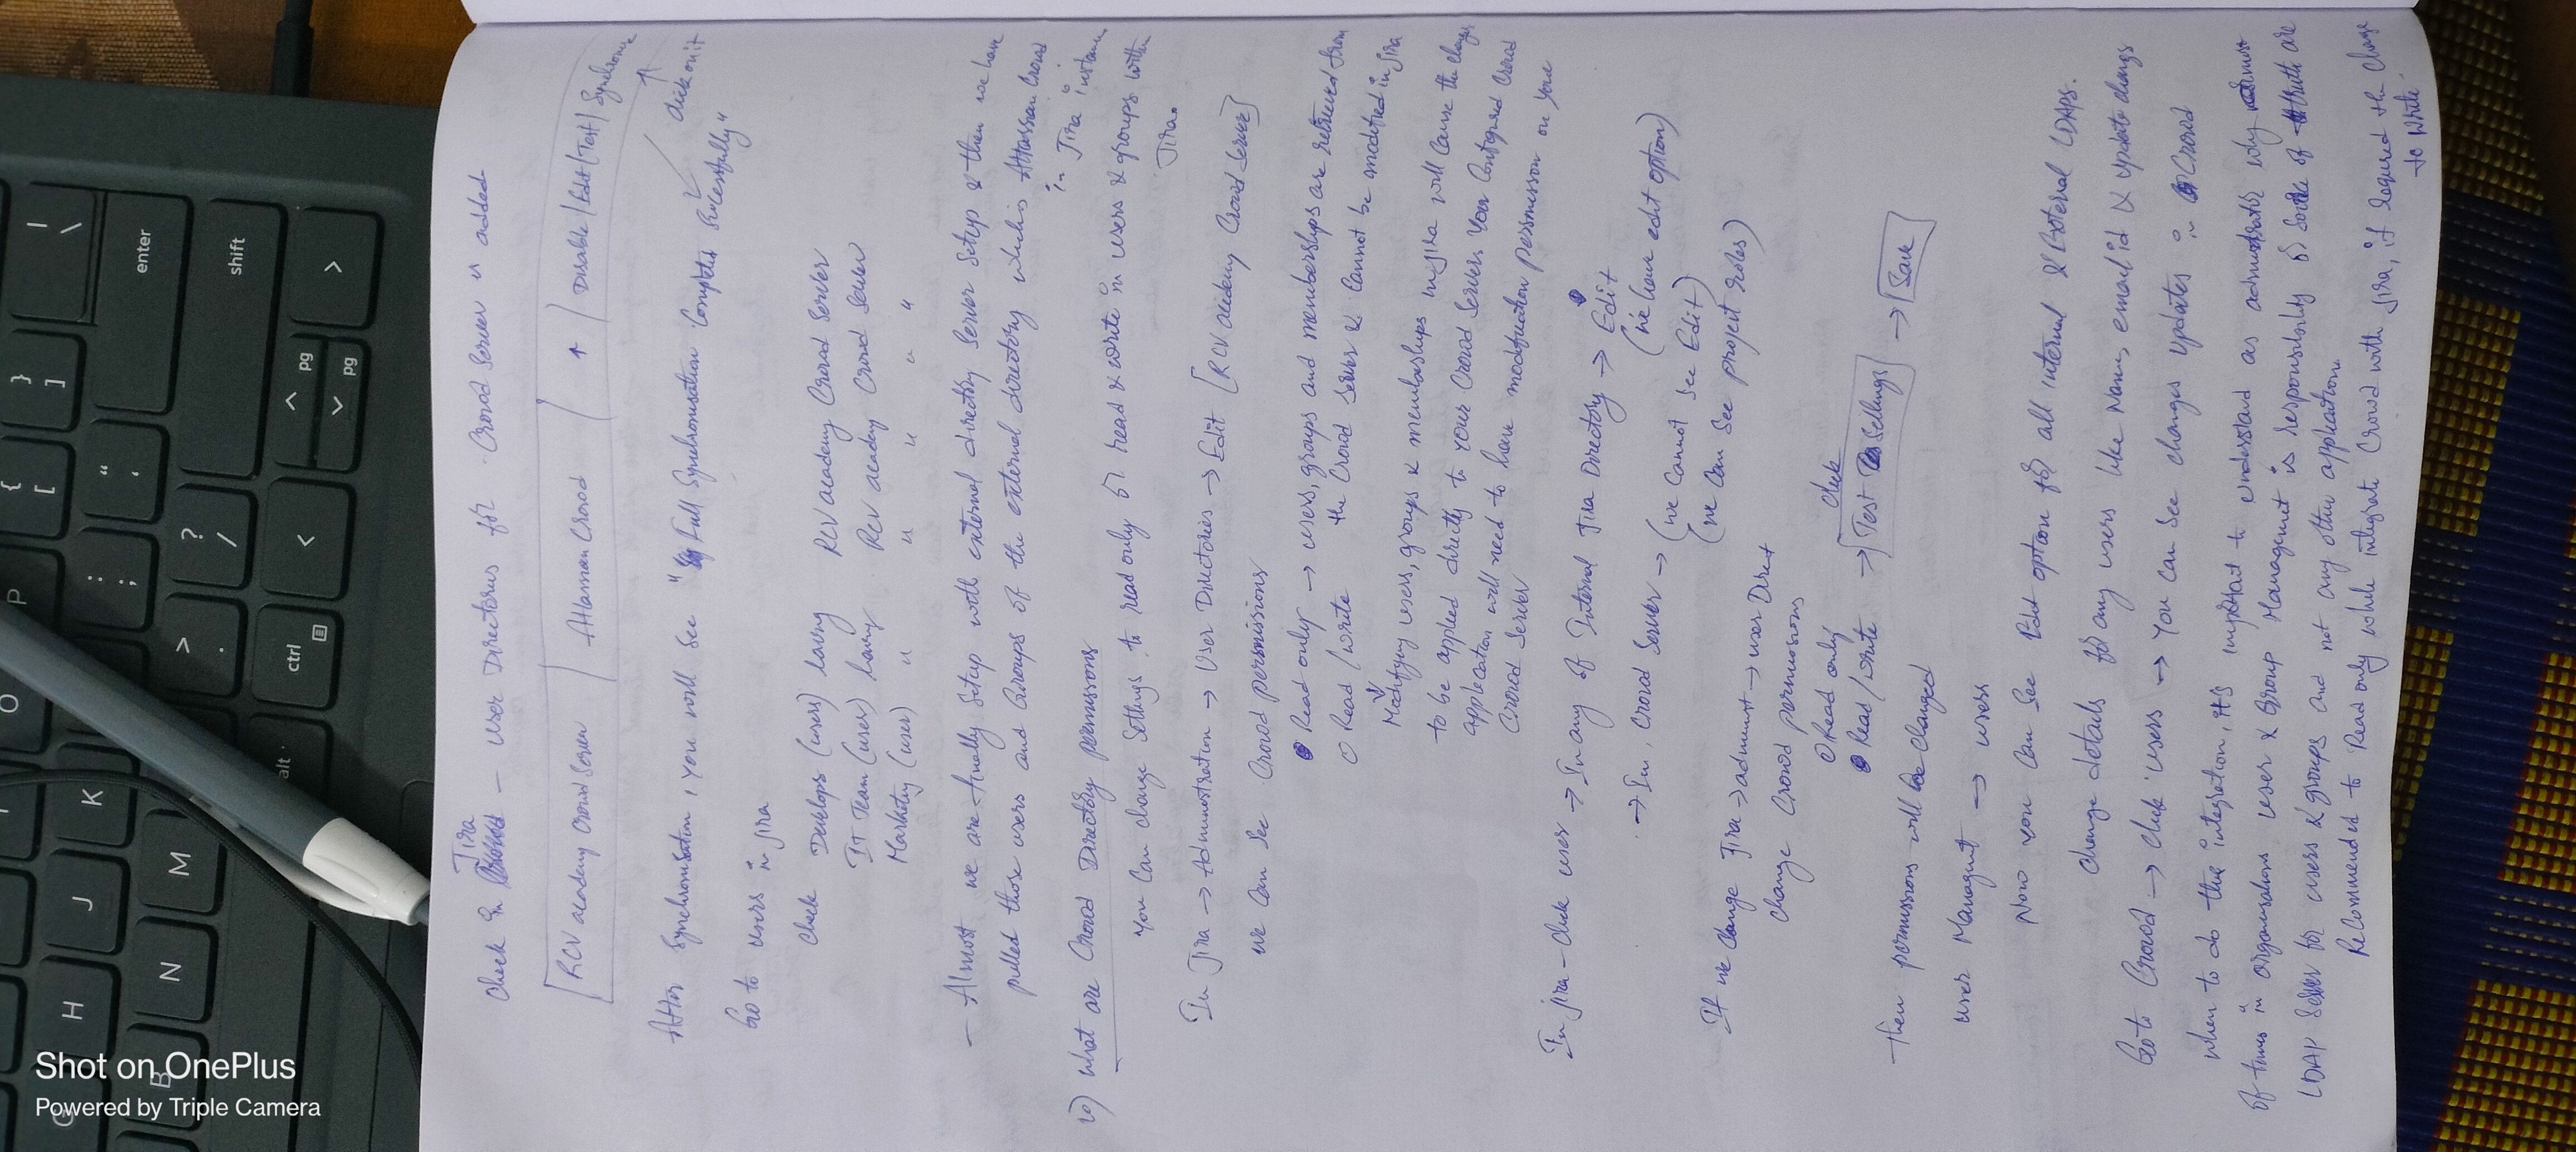 O P { [ } ] | \
H J K : ; " ' enter
B N M > . ? / shift
alt ctrl < ^ pg pg >
Shot on OnePlus
Powered by Triple Camera
Jira
Check in - User Directories for Crowd Server is added
RCV academy Crowd Server | Atlassian Crowd | ↑ | Disable | Edit | Test | Synchronise
click on it
After Synchronisation, you will see " Full Synchronisation Completed Sucessfully"
Go to users in jira
check Develops (users) having RCV academy Crowd Server
IT Team (user) having RCV academy Crowd Server
Marketing (user) " " " " "
- Almost we are finally Setup with external directory Server Setup & then we have
pulled those users and Groups of the external directory which is Atlassian Crowd
in Jira instance
10) what are Crowd Directory permissions
You can change Settings to read only or read & write in users & groups within
Jira.
In Jira → Administration → User Directories → Edit [RCV academy Crowd Server]
we can See Crowd permissions
● Read only → users, groups and memberships are retrieved from
○ Read / write the Crowd Server & Cannot be modified in jira
Modifying users, groups & memberships in jira will cause the changes
to be applied directly to your Crowd Server. Your Configured Crowd
application will need to have modification permission on your
Crowd Server
In jira - click user → In any of Internal Jira Directory → Edit
(we have edit option)
→ In Crowd Server → (we Cannot see Edit)
(we can See project roles)
If we change Jira → administ → user Direct
change Crowd permissions
○ Read only
click
● Read / write → Test Settings → Save
then permissions will be changed
user Managmt → users
Now you can See Edit option for all internal & External LDAPS.
change details for any users like Name, email id & update changes
Go to Crowd → click users → You can See changes updates in Crowd
when to do this integration, it's important to understand as administrator why most
of times in organisations user & Group Management is responsibility or Source of truth are
LDAP Server for users & groups and not any other application.
Recommended to Read only while integrate Crowd with jira, if required the change
to write